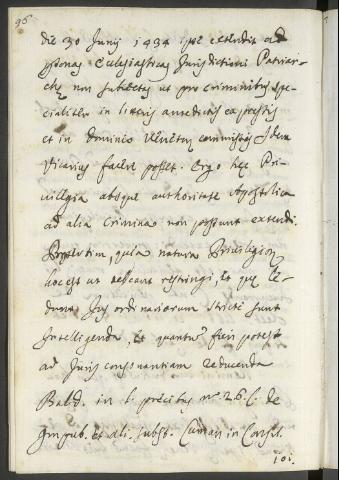 96
die 30 Junij 1434 ipse extendit ad
psonas Eclesiasticas Jurisdictioni Patriar-
chę non subiectas ut pro criminibus spe-
cialiter in litteris antedictis expressis
et in dominio Venetum commissis Idem
Vicarius facere posset. Ergo hęc Pri-
uilegia absque authoritate Apostolica
ad alia crimina non possunt extendi.
quia natura Priuilegiorum
hoc est ut debeant restringi, et quę lę-
dunt Jus ordinariorum stricte sunt
intelligenda, et quantum fieri potest
ad Juris consonantiam reducenda
Bald. in l. precibus nu. 26. C. de
Impub. et ali. subst. Cuman in Consil.
101.